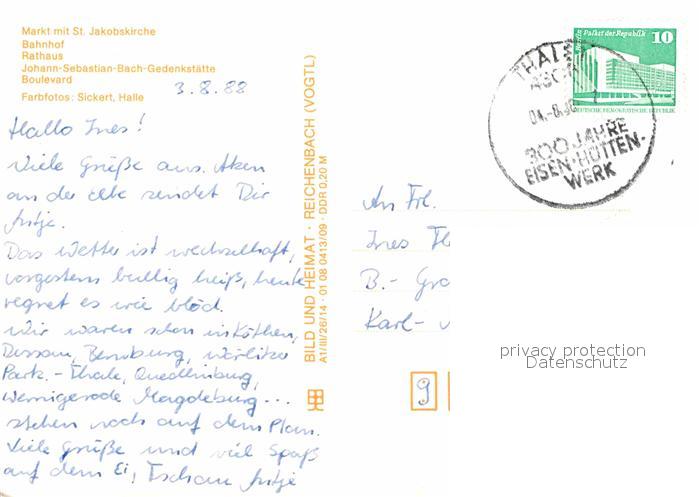 Markt mit St. Jakobskirche
Bahnhof
Rathaus
Johann-Sebastian-Bach-Gedenkstätte
Boulevard
Farbfotos: Sickert, Halle
3.8.88
Hallo Ines!
Viele Grüße aus Aken
an der Elbe sendet Dir
Antje.
Das Wetter ist wechselhaft,
vorgestern bullig heiß, heute
regnet es wie blöd.
Wir waren schon in Köthen,
Dessau, Bernburg, Wörlitzer
Park. - Thale, Quedlinburg,
Wernigerode Magdeburg...
stehen noch auf dem Plan.
Viele Grüße und viel Spaß
auf dem Ei, Tschau Antje
BILD UND HEIMAT · REICHENBACH (VOGTL)
A1/III/26/14 · 01 08 0413/09 · DDR 0,20 M
Berlin Palast der Republik 10
DEUTSCHE DEMOKRATISCHE REPUBLIK
THALE
04.-8.88
300 JAHRE
EISEN-HÜTTEN-
WERK
An Frl.
Ines
B.-
Karl-
9
privacy protection
Datenschutz